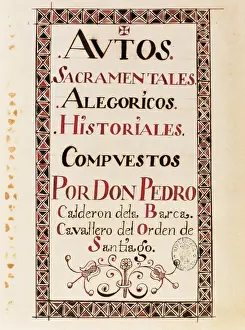 AVTOS.
SACRAMENTALES.
.ALEGORICOS.
.HISTORIALES.
COMPVESTOS
POR DON PEDRO
Calderon dela Barca.
Cavallero del Orden de
Santiago.